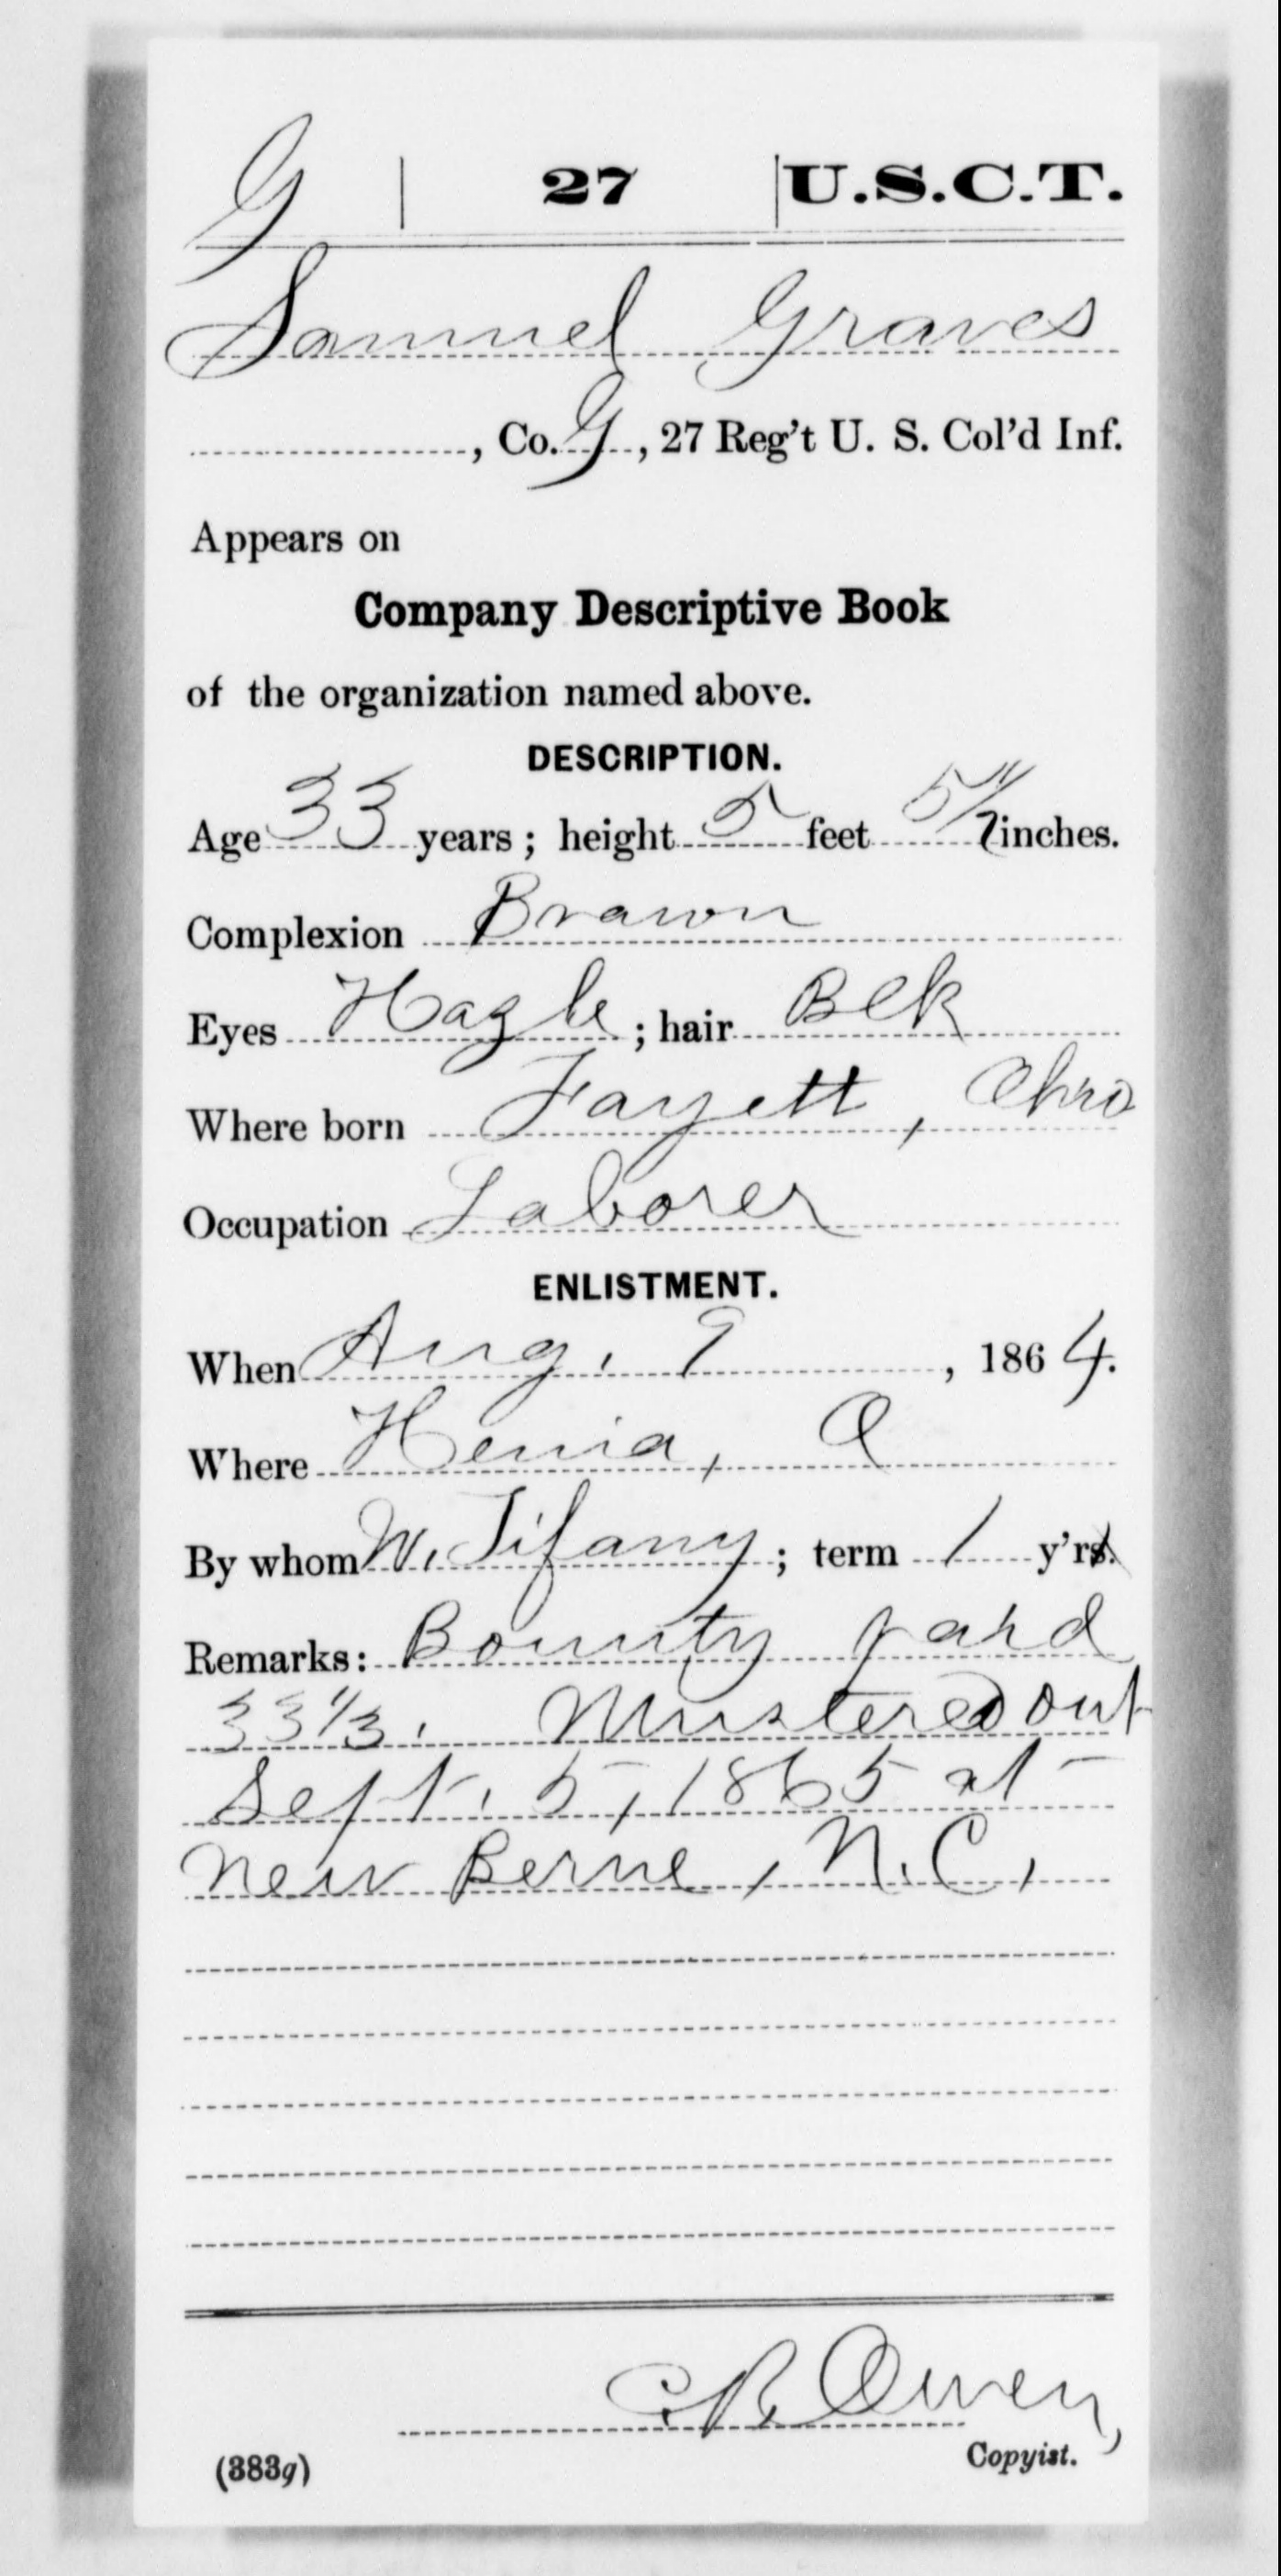 G | 27 | U.S.C.T.
Samuel Graves
, Co. G, 27 Reg't U. S. Col'd Inf.
Appears on
Company Descriptive Book
of the organization named above.
DESCRIPTION.
Age 33 years; height 5 feet 5 1/2 inches.
Complexion Brown
Eyes Hazle; hair Blk
Where born Fayett, Ohio
Occupation Laborer
ENLISTMENT.
When Aug. 9, 1864.
Where Xenia, O
By whom W. Tifany; term 1 y'rs.
Remarks: Bounty paid
33 1/3. Mustered out
Sept. 5, 1865 at
New Berne, N.C.
C.B. Owen,
(383g) Copyist.